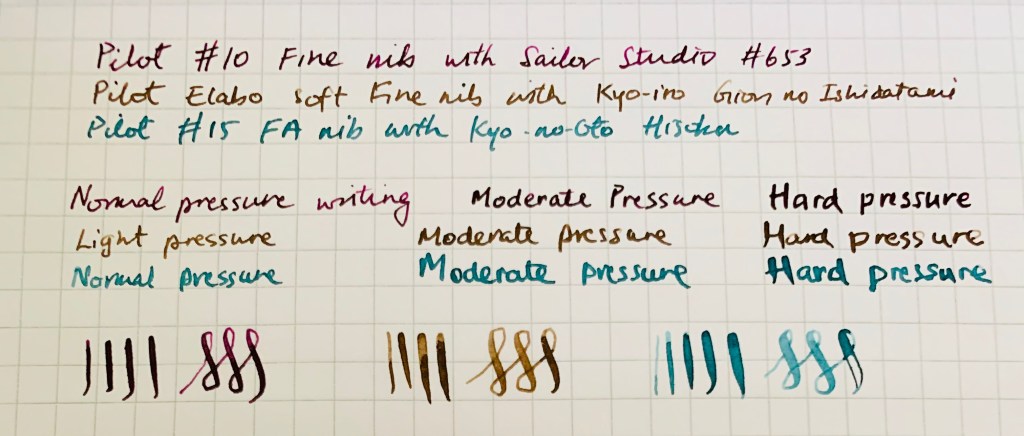 Pilot #10 Fine nib with Sailor Studio #653
Pilot Elabo soft Fine nib with Kyo-iro Gion no Ishidatami
Pilot #15 FA nib with Kyo-no-Oto
Normal pressure writing Moderate Pressure Hard pressure
Light pressure Moderate pressure Hard pressure
Normal pressure Moderate pressure Hard pressure